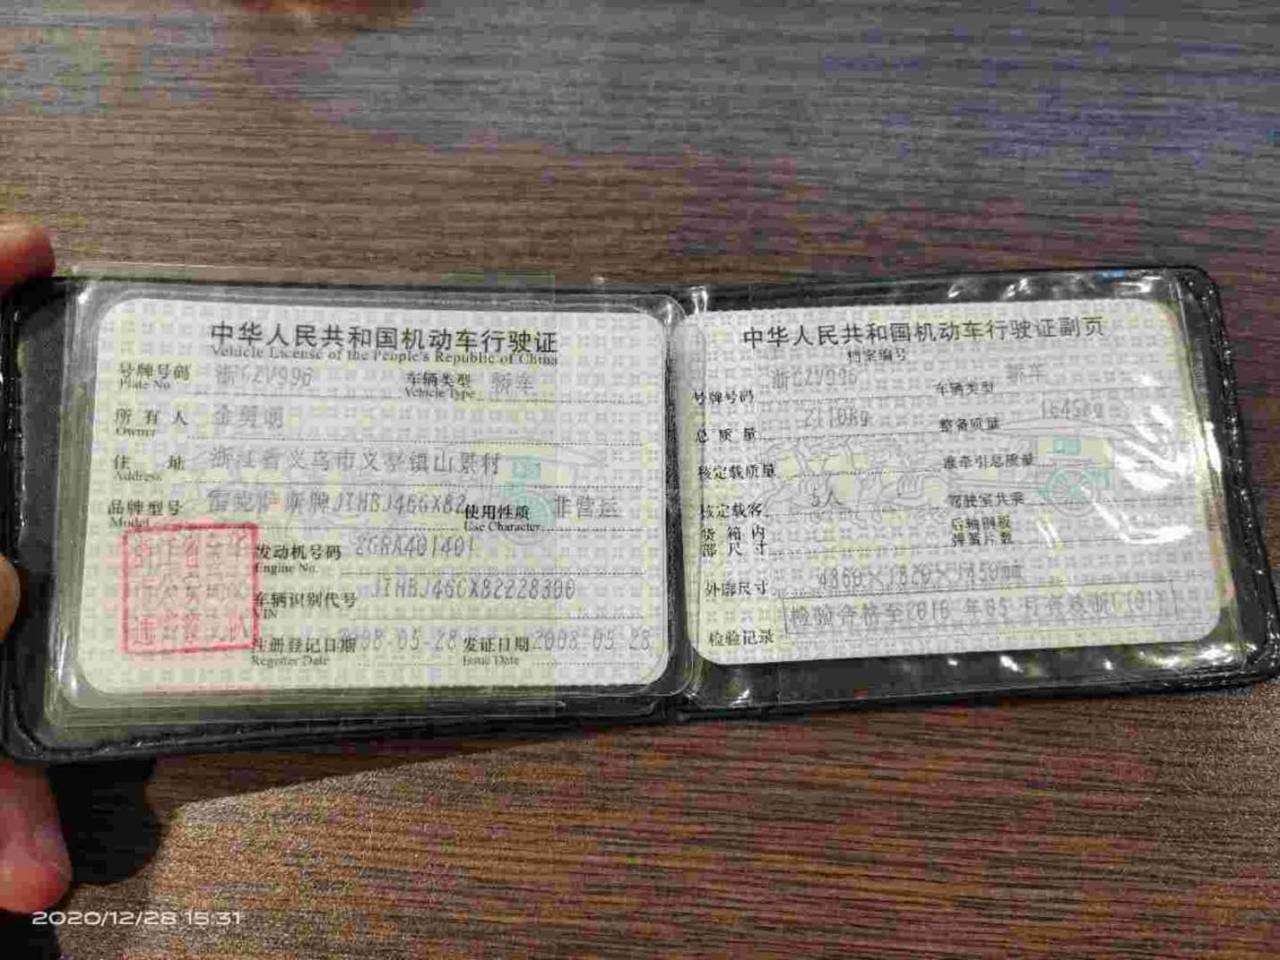 中华人民共和国机动车行驶证
Vehicle License of the People's Republic of China
号牌号码 浙GZV996 车辆类型 轿车
Plate No. Vehicle Type
所有人
Owner
住址 浙江省义乌市义亭镇山景村
Address
品牌型号 雷克萨斯牌JTHBJ46GX82 使用性质 非营运
Model Use Character
发动机号码 2GRA401401
Engine No.
车辆识别代号 JTHBJ46GX82228300
VIN
注册登记日期 2008-05-28 发证日期 2008-05-28
Register Date Issue Date
中华人民共和国机动车行驶证副页
档案编号
号牌号码 浙GZV996 车辆类型 轿车
总质量 2110kg 整备质量 1645kg
核定载质量 准牵引总质量
核定载客 5人 驾驶室共乘
货箱内部尺寸 后轴钢板弹簧片数
外廓尺寸 4860×1820×1450mm
检验记录 检验合格至2010-05
2020/12/28 15:31